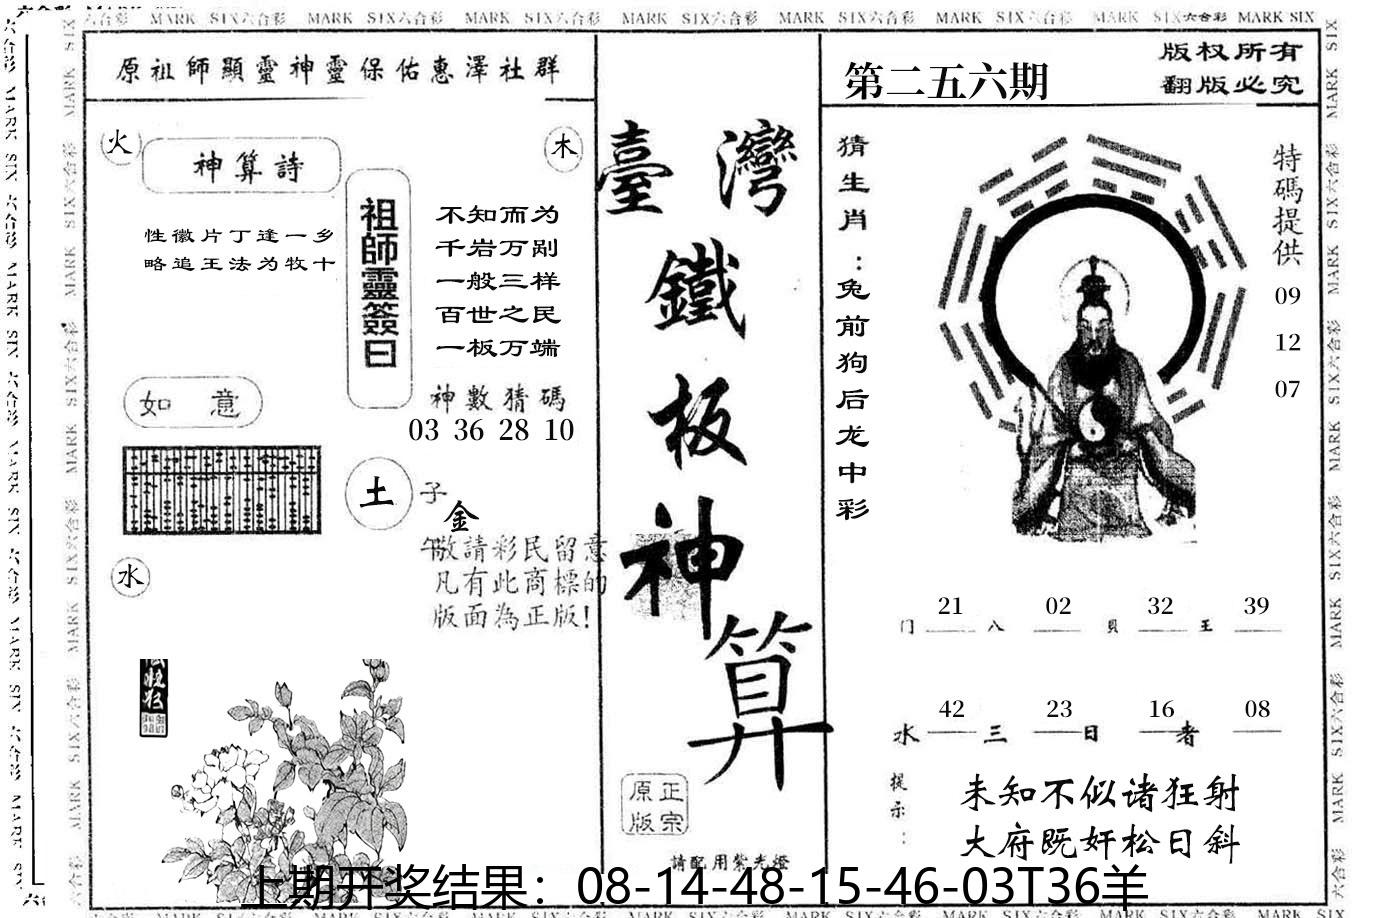 MARK SIX六合彩 MARK SIX六合彩 MARK SIX六合彩 MARK SIX六合彩 MARK SIX六合彩 MARK SIX六合彩 MARK SIX六合彩 MARK SIX
原祖師顯靈神靈保佑惠澤社群
火
木
神算詩
性徽片丁逢一乡
略追王法为牧十
祖師靈簽曰
不知而为
千岩万剐
一般三样
百世之民
一板万端
神數猜碼
03 36 28 10
如意
土
子
金
午
敬請彩民留意
凡有此商標的
版面為正版!
水
臺灣
鐵
板
神
算
原正
版宗
請配用紫光燈
第二五六期
版权所有
翻版必究
猜生肖:兔前狗后龙中彩
特碼提供
09
12
07
门 21 八 02 貝 32 王 39
水 42 三 23 日 16 者 08
提示:
未知不似诸狂射
大府既奸松日斜
上期开奖结果：08-14-48-15-46-03T36羊